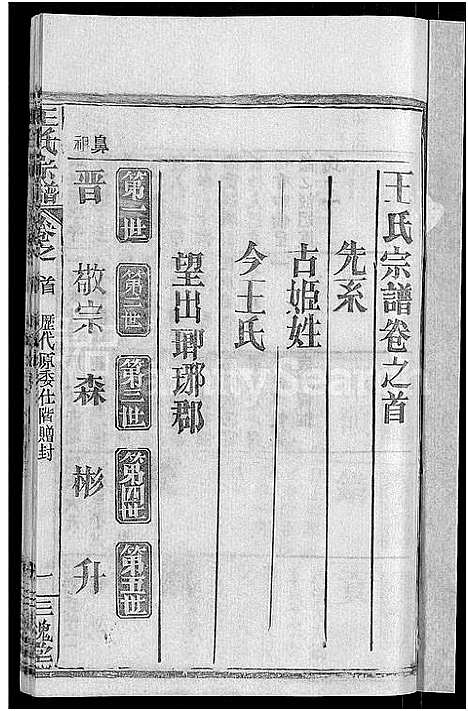 王氏宗譜卷之首
先系
古姬姓
今王氏
望出瑯琊郡
第一世
第二世
第三世
第四世
第五世
鼻祖
晋
敬宗
森
彬
升
王氏宗譜
卷之首
歷代原委仕階贈封
一
三槐堂